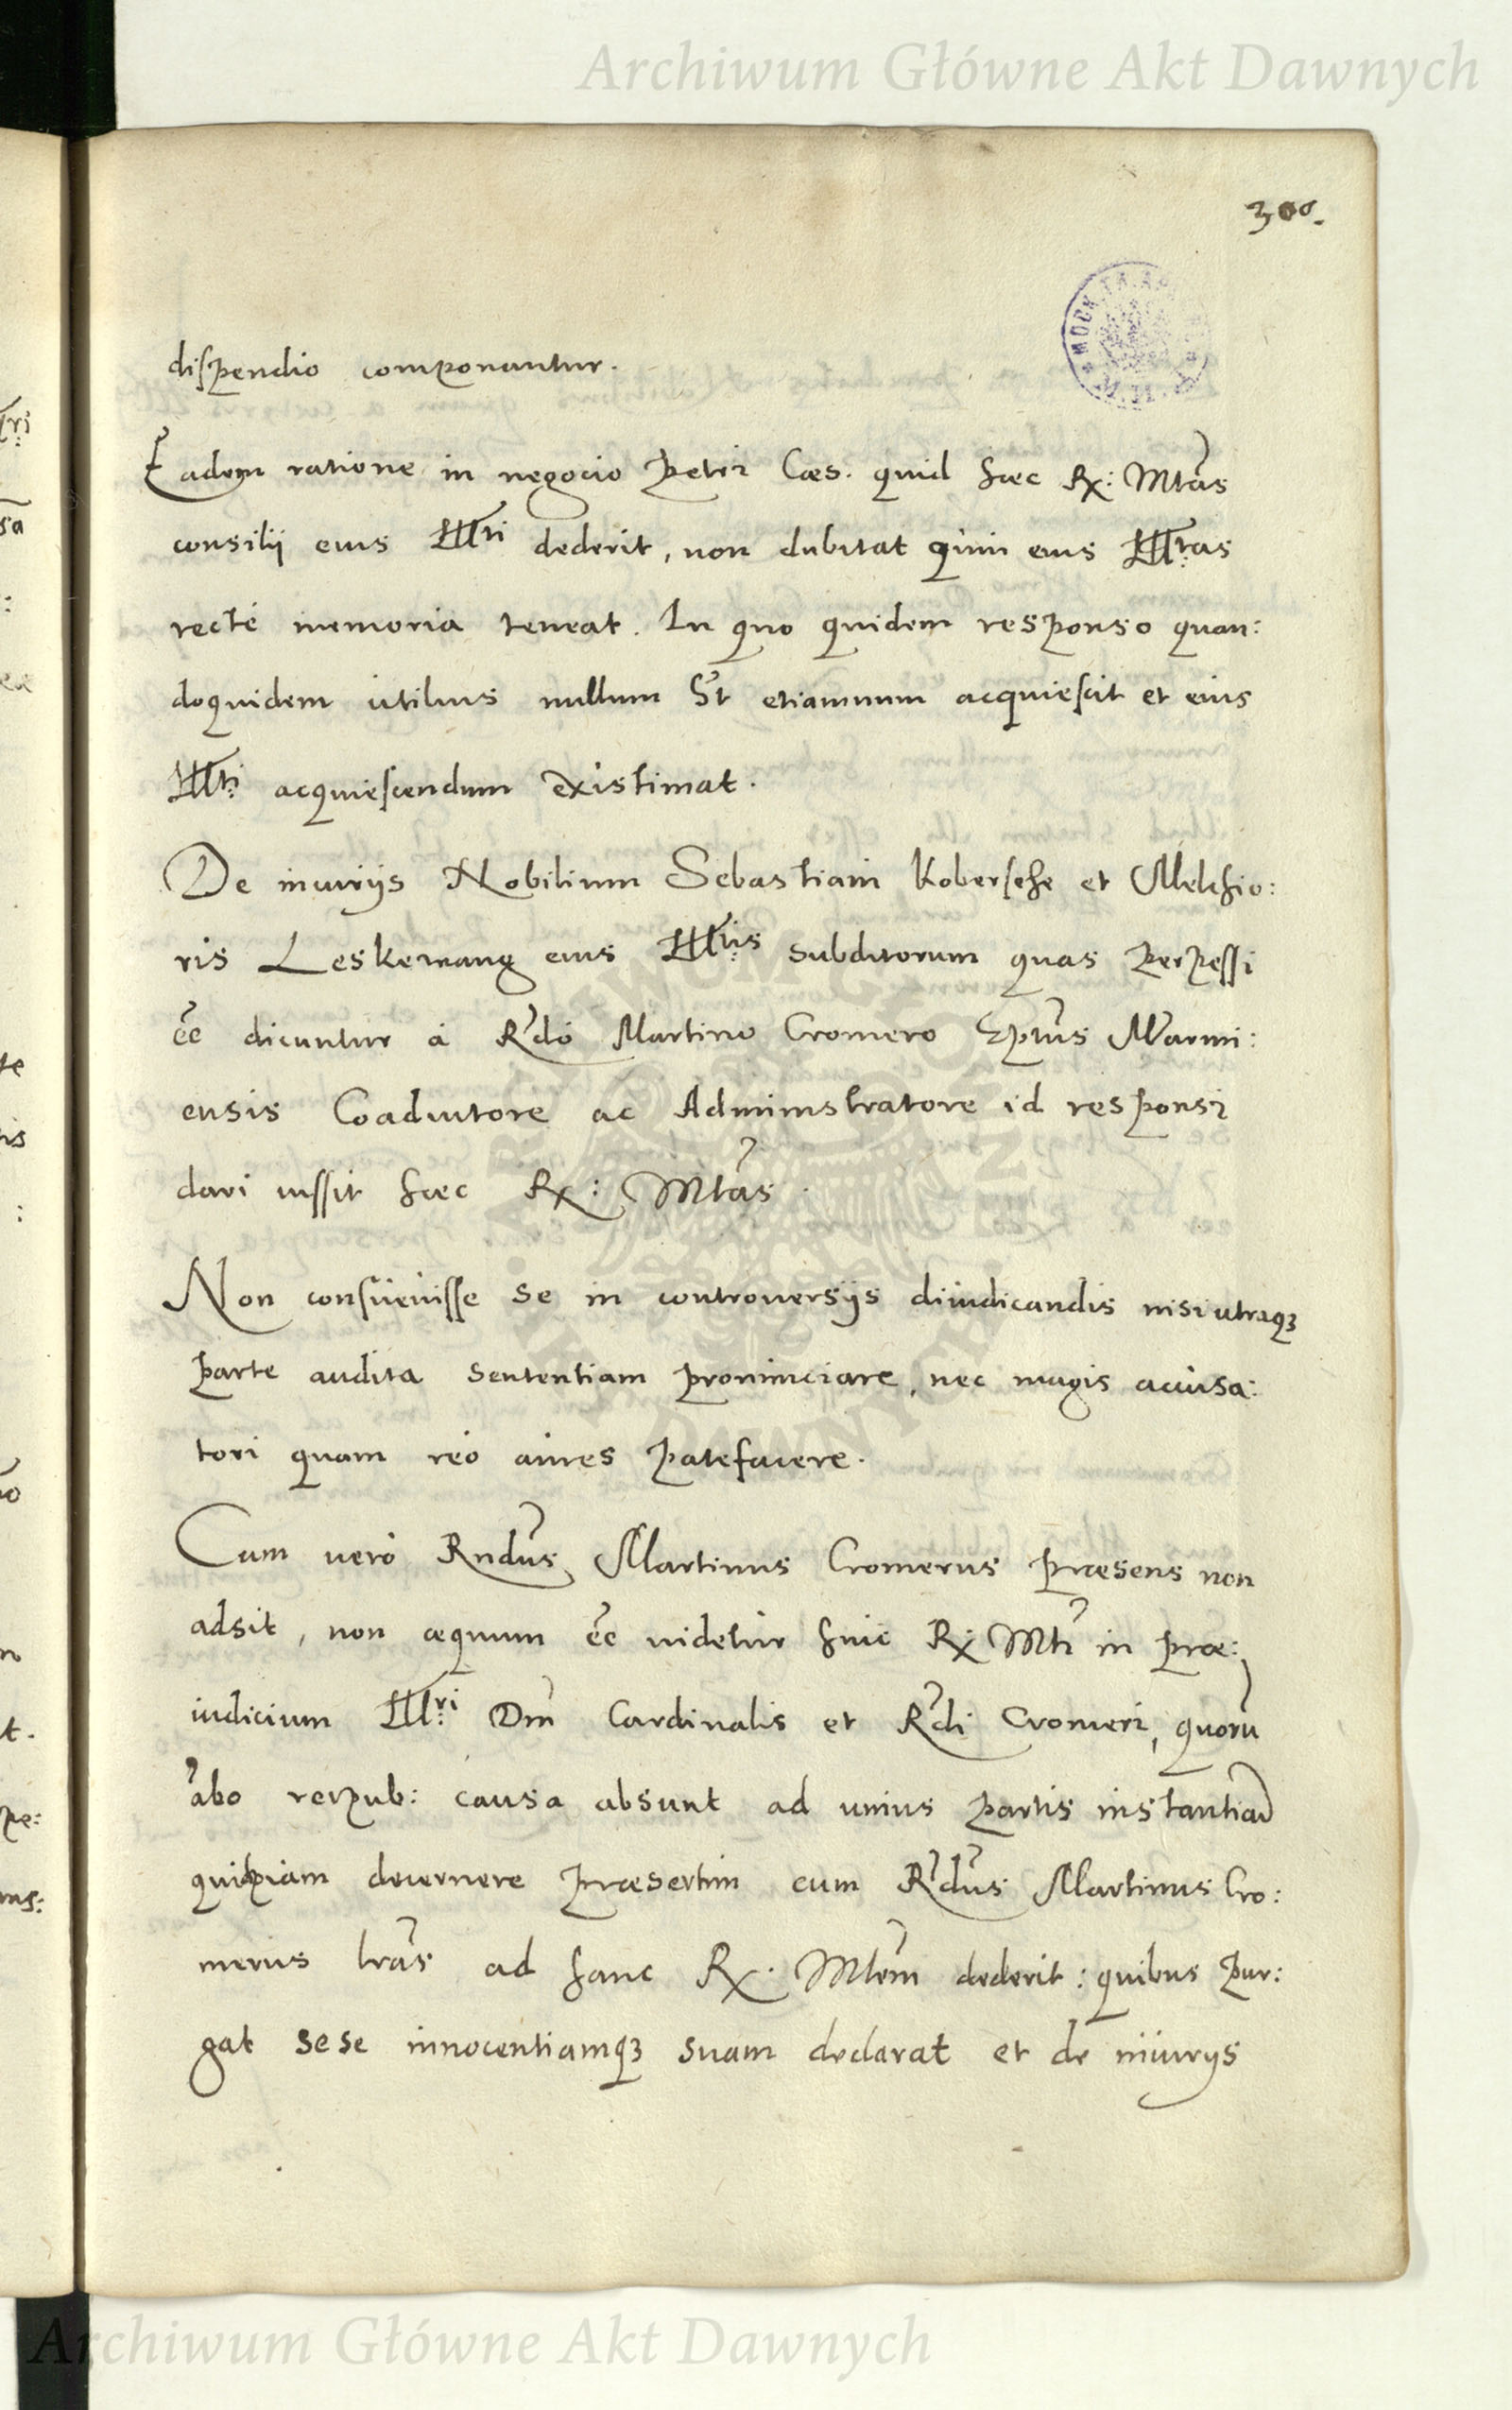 Archiwum Główne Akt Dawnych
300.
dispendio componantur.
Eadem ratione in negocio Petri Cæs. quid hæc Rx: Mtas
consilij eius Illti dederit, non dubitat quin eius Illtas
recté memoria teneat. In quo quidem responso quan:
doquidem utilius nullum sit etiamnum acquiescit et eius
Illti acquiescendum existimat.
De iniurijs Nobilium Sebastiani Kobersehe et Melchio:
ris Leskewang eius Illtis subditorum quas perpessi
eẽ dicuntur á Rdo Martino Cromero Eptus Warmi:
ensis Coadiutore ac Administratore id responsi
dari iussit hæc Rx: Mtas.
Non consueuisse se in controuersijs diiudicandis nisi utraqȝ
parte audita sententiam pronunciare, nec magis accusa:
tori quam reo aures patefacere.
Cum vero Rndus Martinus Cromerus præsens non
adsit, non æquum eẽ uidetur huic Rx Mti in præ:
iudicium Illri Dni Cardinalis et Rdi Cromeri, quorũ
abo reipub: causa absunt ad unius partis instantiam
quipiam decernere præsertim cum Rdus Martinus Cro:
merus lras ad hanc Rx. Mtem dederit: quibus pur:
gat sese innocentiamqȝ suam declarat et de iniurijs
Archiwum Główne Akt Dawnych